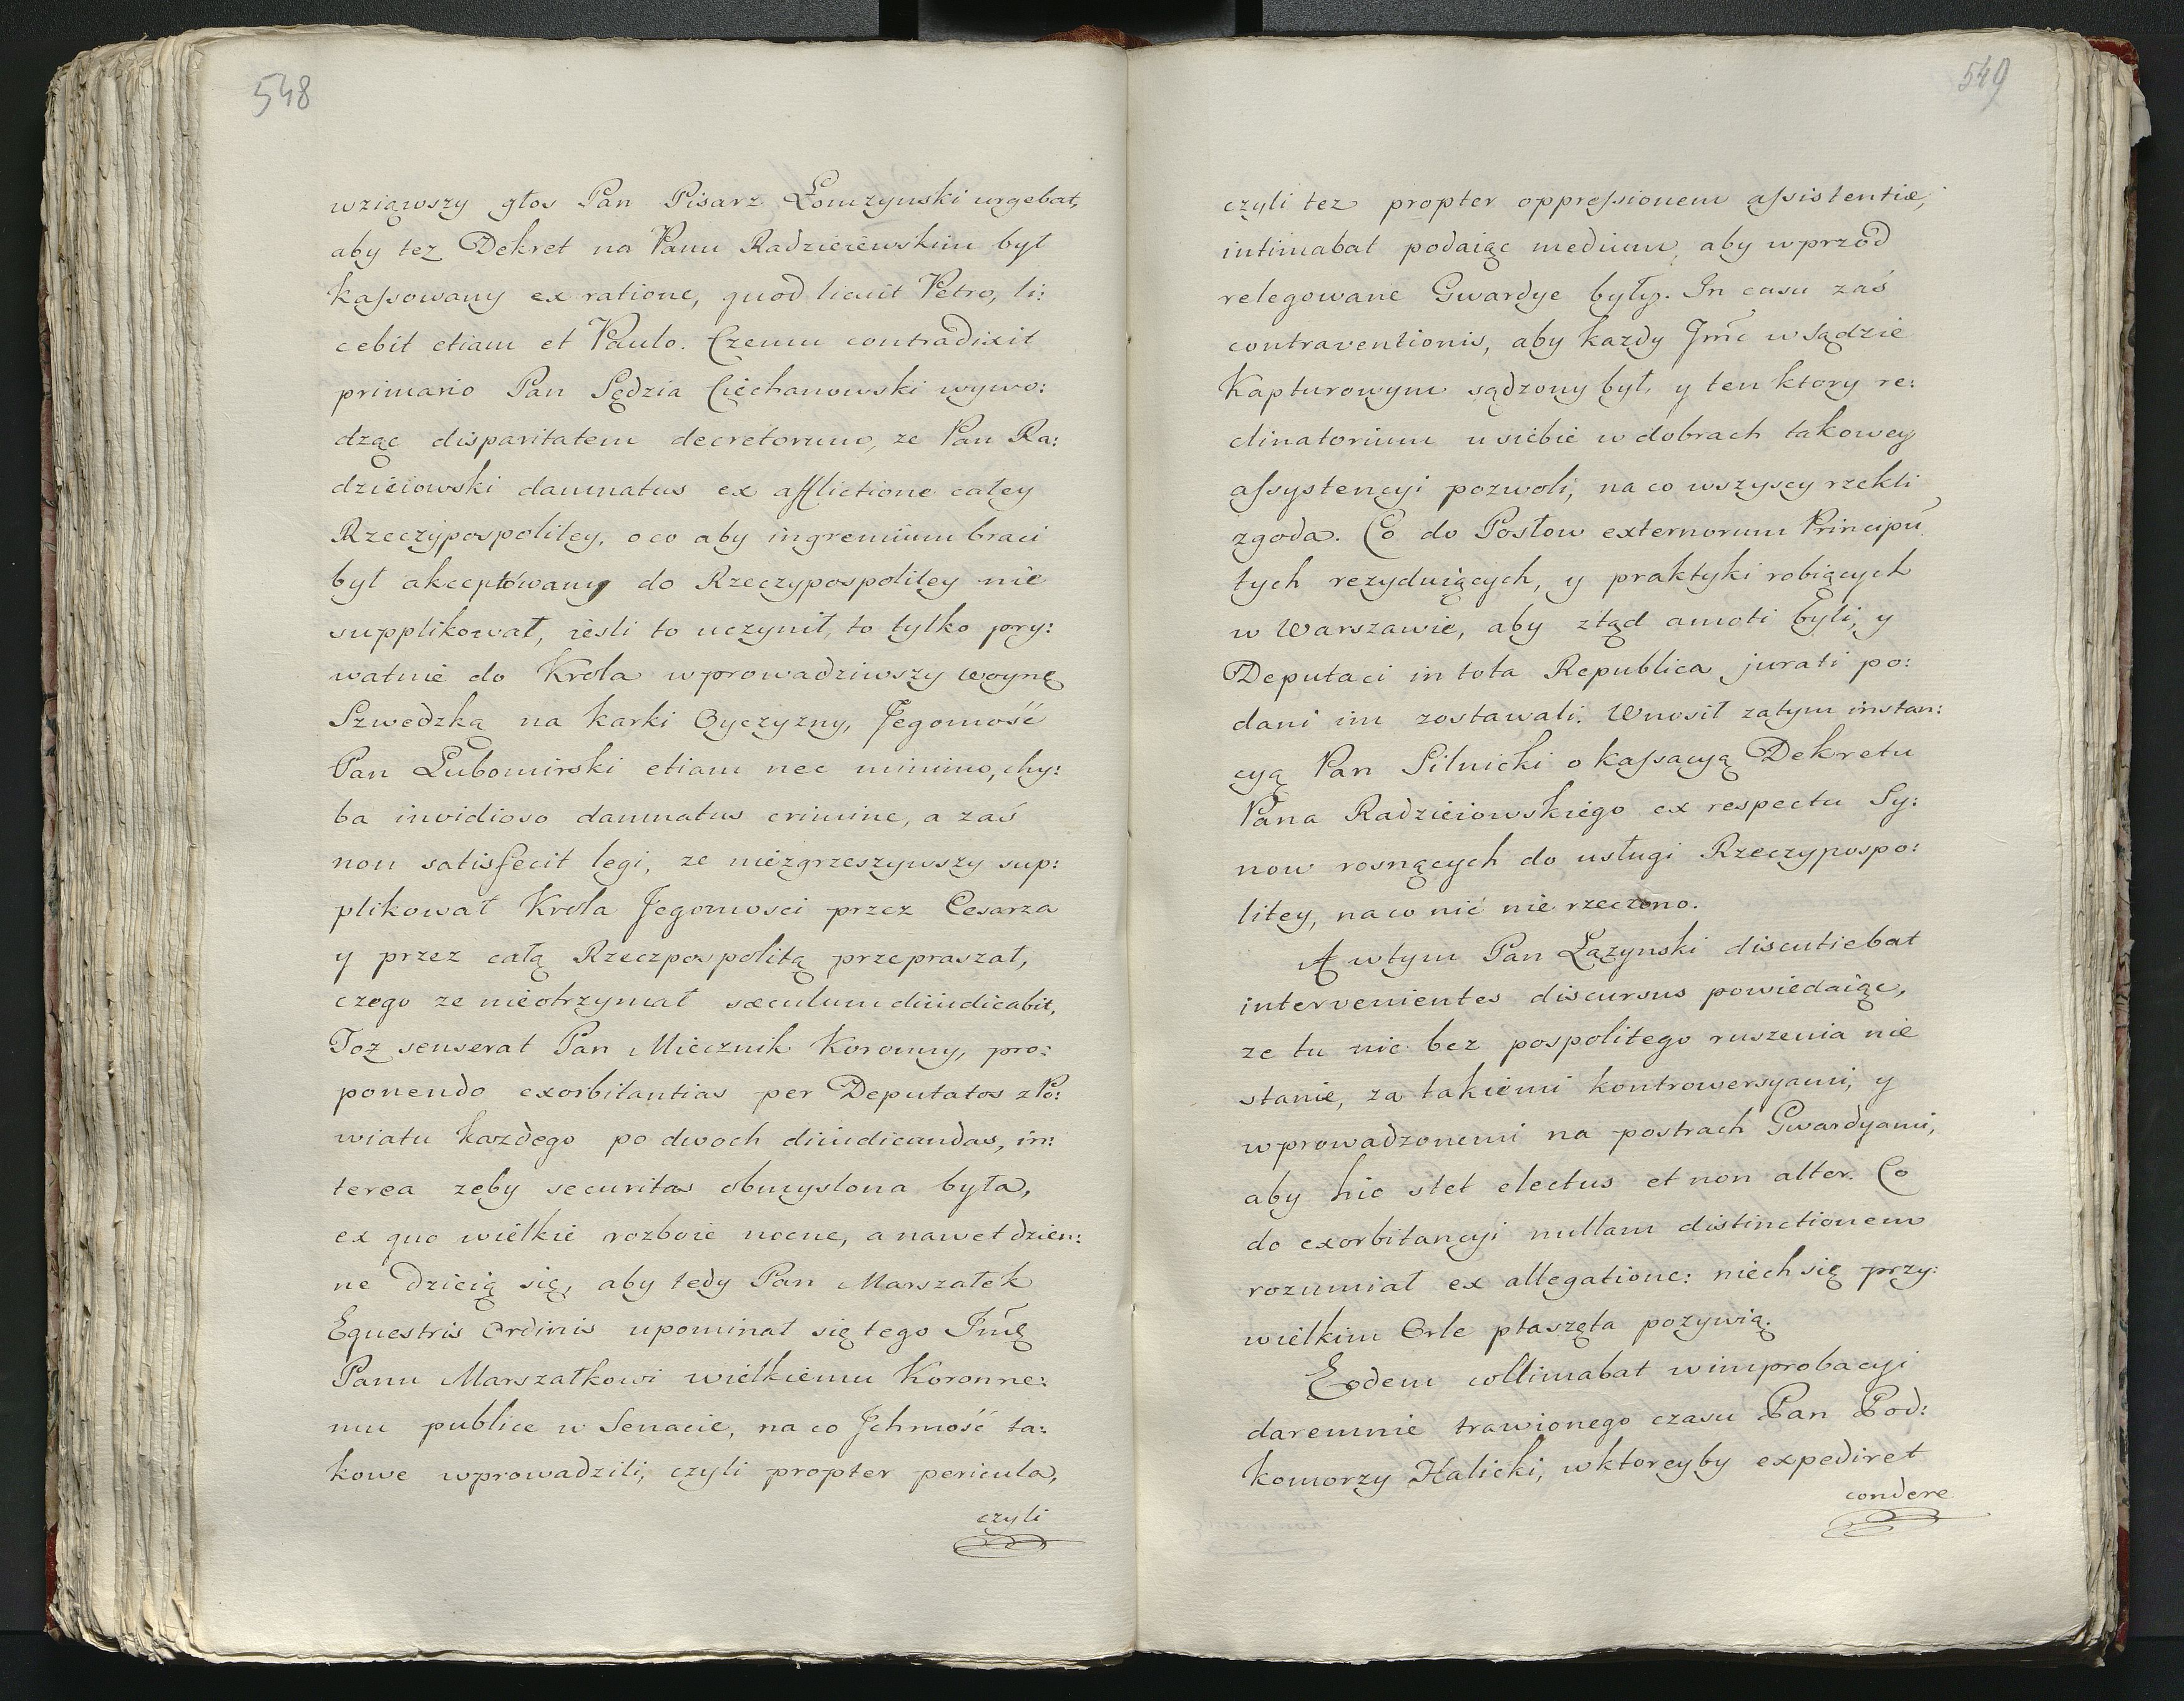 548
wziąwszy głos Pan Pisarz Łomzynski urgebat,
aby tez Dekret na Panu Radzieiewskim był
kassowany ex ratione, quod licuit Petro, li:
cebit etiam et Paulo. Czemu contradixit
primario Pan Sędzia Ciechanowski wywo:
dząc disparitatem decretorum, ze Pan Ra:
dzieiowski damnatus ex afflictione całey
Rzeczypospolitey, o co aby in gremium braci
był akceptowany do Rzeczypospolitey nie
supplikował, iesli to uczynił, to tylko pry:
watnie do Krola wprowadziwszy woynę
Szwedzką na karki Oyczyzny, Jegomość
Pan Lubomirski etiam nec minimo, chy:
ba invidioso damnatus crimine, a zaś
non satisfecit legi, ze niezgrzeszywszy sup:
plikował Krola Jegomosci przez Cesarza
y przez całą Rzeczpospolitą przepraszał,
czego ze nieotrzymał sæculum diiudicabit,
Toz senserat Pan Miecznik Koronny, pro:
ponendo exorbitantias per Deputatos z Po:
wiatu kazdego po dwoch diiudicandas, in:
terea zeby securitas obmyslona była,
ex quo wielkie rozboie nocne, a nawet dzien:
ne dzieią się, aby tedy Pan Marszałek
Equestris Ordinis upominał się tego Jmę
Panu Marszałkowi wielkiemu Koronne:
mu publice w Senacie, na co Jchmość ta:
kowe wprowadzili, czyli propter pericula,
czyli
549
czyli tez propter oppressionem assistentiæ,
intimabat podaiąc medium, aby wprzod
relegowane Gwardye były. In casu zaś
contraventionis, aby kazdy Jmć w Sądzie
Kapturowym sądzony był, y ten ktory re:
clinatorium u siebie w dobrach takowey
assystencyi pozwoli, na co wszyscy rzekli
zgoda. Co do Posłow externorum Principũ
tych rezyduiących, y praktyki robiących
w Warszawie, aby ztąd amoti byli, y
Deputaci in tota Republica jurati po:
dani im zostawali. Wnosił zatym instan:
cyą Pan Silnicki o kassacyą Dekretu
Pana Radzieiowskiego ex respectu Sy:
now rosnących do usługi Rzeczypospo:
litey, na co nić nie rzeczono.
A wtym Pan Łazynski discutiebat
intervenientes discursus powiedaiąc,
ze tu nic bez pospolitego ruszenia nie
stanie, za takiemi kontrowersyami, y
wprowadzonemi na postrach Gwardyami,
aby hic stet electus et non alter. Co
do exorbitancyi nullam distinctionem
rozumiał ex allegatione: niech się przy:
wielkim Orle ptaszęta pozywią.
Eodem collimabat w improbacyi
daremnie trawionego czasu Pan Pod:
komorzy Halicki, w ktoreyby expediret
condere